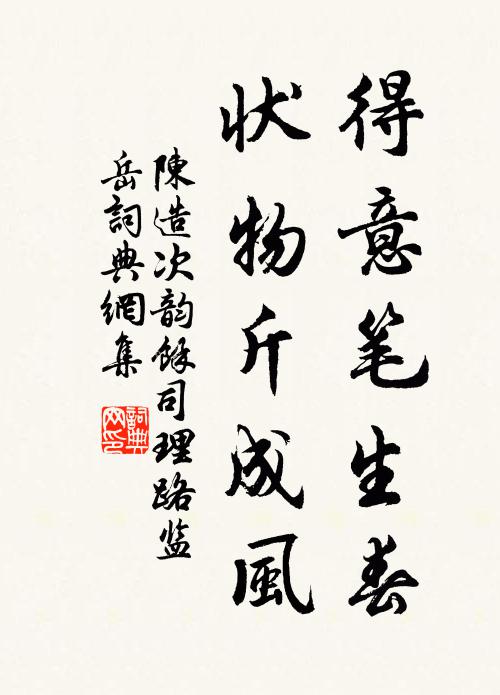 得意笔生春
状物斤成風
陳造次韵餘司理路监
岳詞典網集
詞典
网印